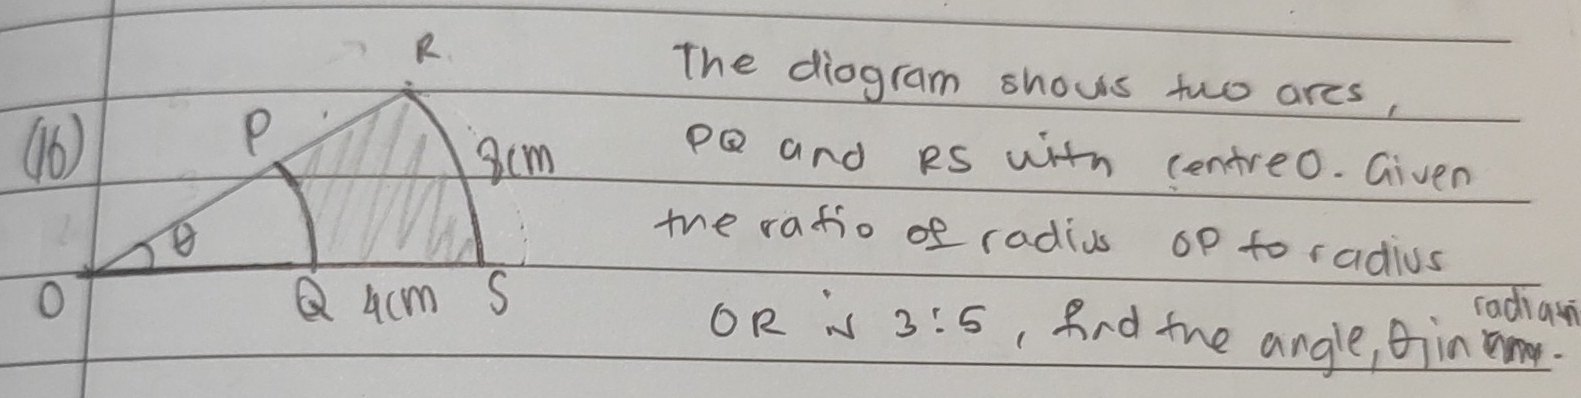 R
The diagram shows two arcs,
(16) P 8cm PQ and RS with centre O. Given
θ the ratio of radius OP to radius
O Q 4cm S OR is 3:5, find the angle, θ in radian.